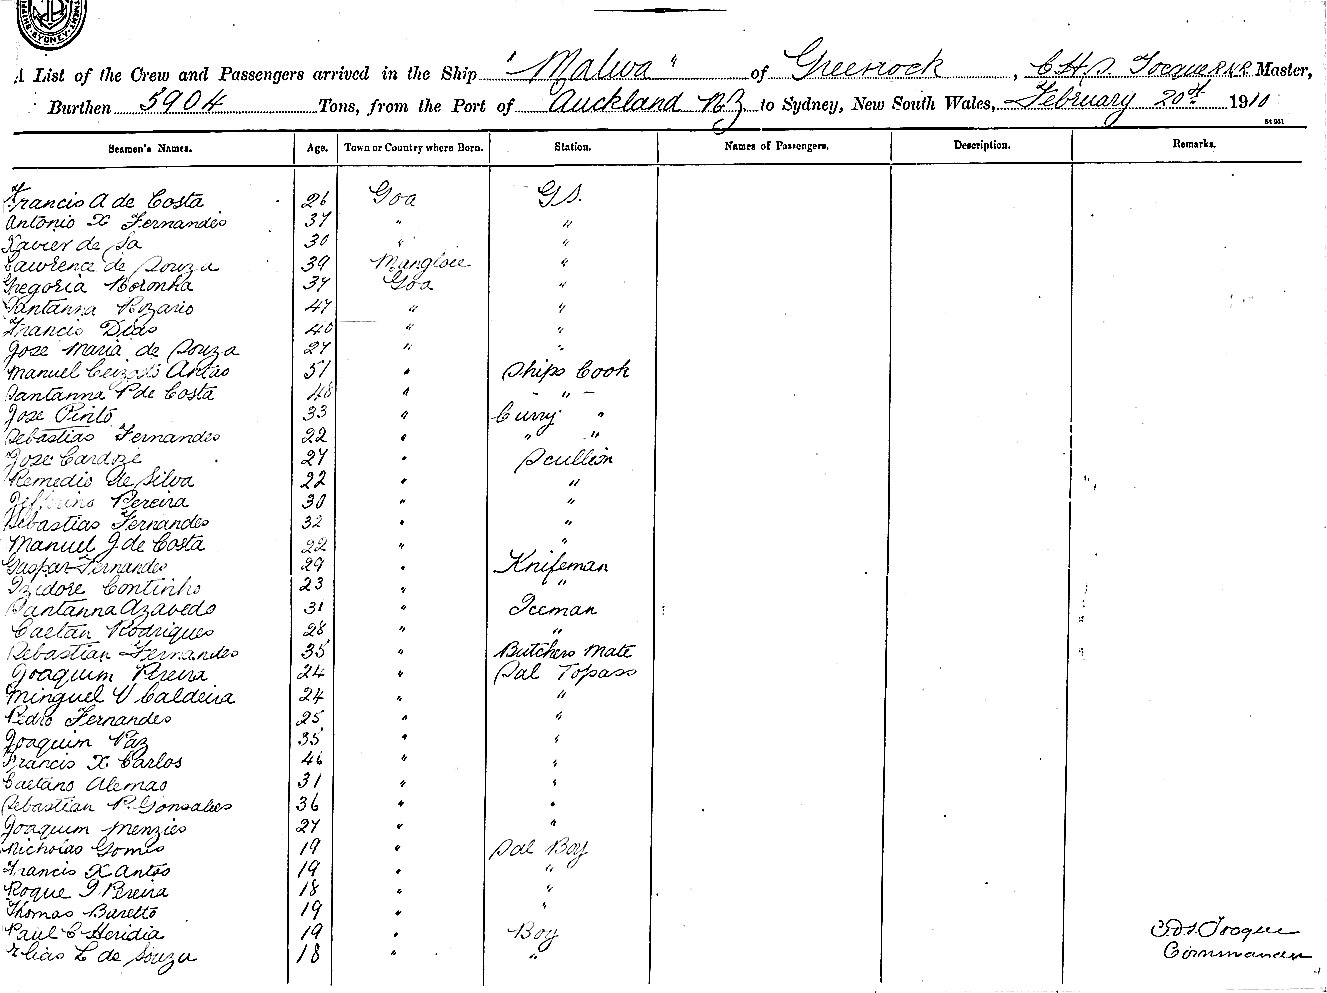 SYDNEY
A List of the Crew and Passengers arrived in the Ship "Malwa" of Greenock, Master,
Burthen 5904 Tons, from the Port of Auckland NZ to Sydney, New South Wales, February 20th 1910
St 951
Seamen's Names. Age. Town or Country where Born. Station. Names of Passengers. Description. Remarks.
Francis A de Costa 26 Goa G.S.
Antonio X Fernandes 37 " "
Xavier de Sa 30 " "
Lawrence de Souza 39 Manglore "
Gregoria Noronha 37 Goa "
Santanna Rozario 47 " "
Francis Dias 40 " "
Jose Maria de Souza 27 " "
Manuel Antao 51 " Ships Cook
Santanna P de Costa 48 " - " -
Jose Pinto 33 " Curry "
Sebastias Fernandes 22 " " "
Jose Cardoze 27 " Scullion
Remedio de Silva 22 " "
Pereira 30 " "
Sebastias Fernandes 32 " "
Manuel J de Costa 22 " "
Gaspar Fernandes 29 " Knifeman
Izidore Continho 23 " "
Santanna Azavedo 31 " Iceman
Caetan Rodrigues 28 " "
Sebastian Fernandes 35 " Butchers Mate
Joaquim Pereira 24 " Sal Topass
Minguel V Caldeira 24 " "
Pedro Fernandes 25 " "
Joaquim Paz 35 " "
Francis X Carlos 46 " "
Caetano Alemao 31 " "
Sebastian P. Gonsalves 36 " "
Joaquim Menzies 27 " "
Nicholas Gomes 19 " Sal Boy
Francis X Antao 19 " "
Roque J Pereira 18 " "
Thomas Baretto 19 " "
Paul C Heridia 19 " Boy
Elias L de Souza 18 " "
Commander